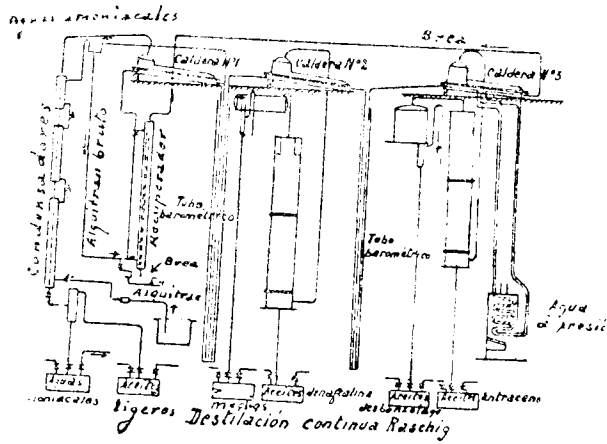 Aguas amoniacales
Brea
Caldera Nº1
Caldera Nº2
Caldera Nº3
Condensadores
Alquitran bruto
Recuperador
Tubo
barométrico
Tubo
barométrico
Brea
Alquitran
Agua
a presió
Aguas
moniacales
Aceites
ligeros
Aceites
denaftalina
Aceites
Aceites
antraceno
Destilación continua Raschig